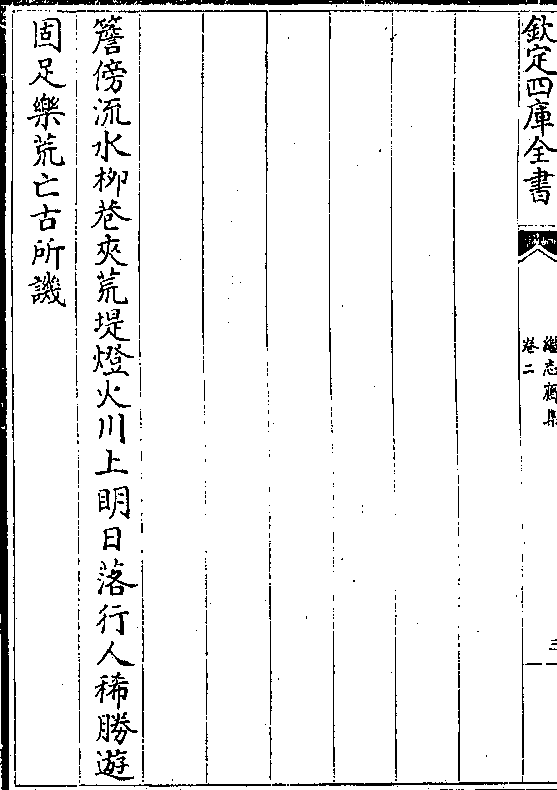 欽定四庫全書
繼志齋集
卷二
三
簷傍流水柳巷夾荒堤燈火川上明日落行人稀勝遊
固足樂荒亡古所譏